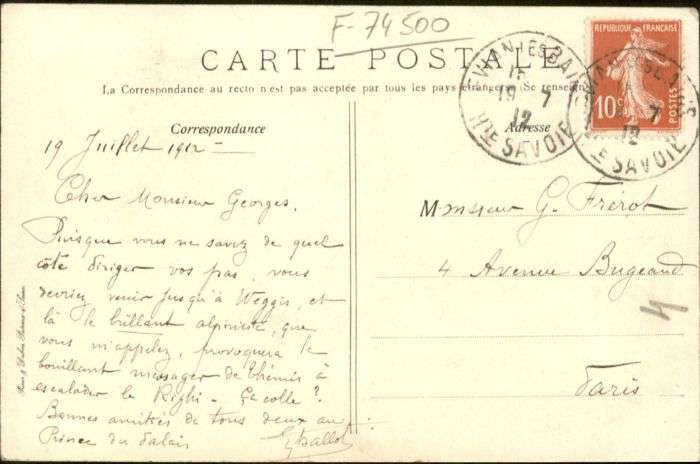 F-74500
CARTE POSTALE
La Correspondance au recto n'est pas acceptée par tous les pays étrangers (Se renseign
Correspondance
Adresse
19 Juillet 1912
Cher Monsieur Georges,
Puisque vous ne savez de quel
côté diriger vos pas, vous
devriez venir jusqu'à Weggis, et
là le brillant alpiniste, que
vous m'appelez, provoquera le
bouillant messager de Thémis à
escalader le Righi - Ça colle ?
Bonnes amitiés de tous deux au
Prince du Palais
Monsieur G. Frérot
4 Avenue Bugeaud
Paris
4
REPUBLIQUE FRANÇAISE
10c
POSTES
EVIAN-LES-BAINS
19 7
12
Hte SAVOIE
7
12
Hte SAVOIE